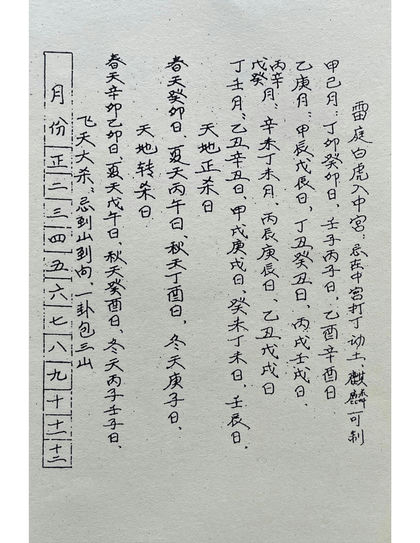 雷庭白虎入中宫:忌在中宫打丁动土 麒麟可制
甲己月:丁卯癸卯日、壬子丙子日、乙酉辛酉日
乙庚月:甲辰戊辰日、丁丑癸丑日、丙戌壬戌日、
丙辛
戊癸月:辛未丁未月、丙辰庚辰日、乙丑戊戌日
丁壬月:乙丑辛丑日、甲戌庚戌日、癸未丁未日、壬辰日、
天地正杀日
春天癸卯日、夏天丙午日、秋天丁酉日、冬天庚子日、
天地转杀日
春天辛卯乙卯日、夏天戊午日、秋天癸酉日、冬天丙子壬子日、
飞天大杀:忌到山到向、一卦包三山
月份 正 二 三 四 五 六 七 八 九 十 十一 十二